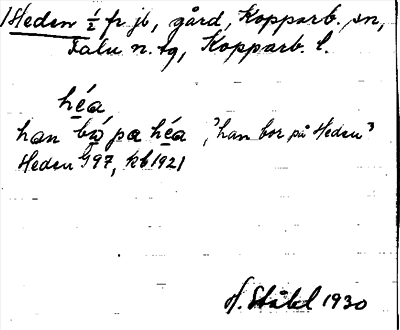 Heden ½ fr jb, gård, Kopparb. sn,
Falu n. tg, Kopparb. l.
héa
han bó pa héa, "han bor på Heden"
Heden G97, kb 1921
H. Ståhl 1930